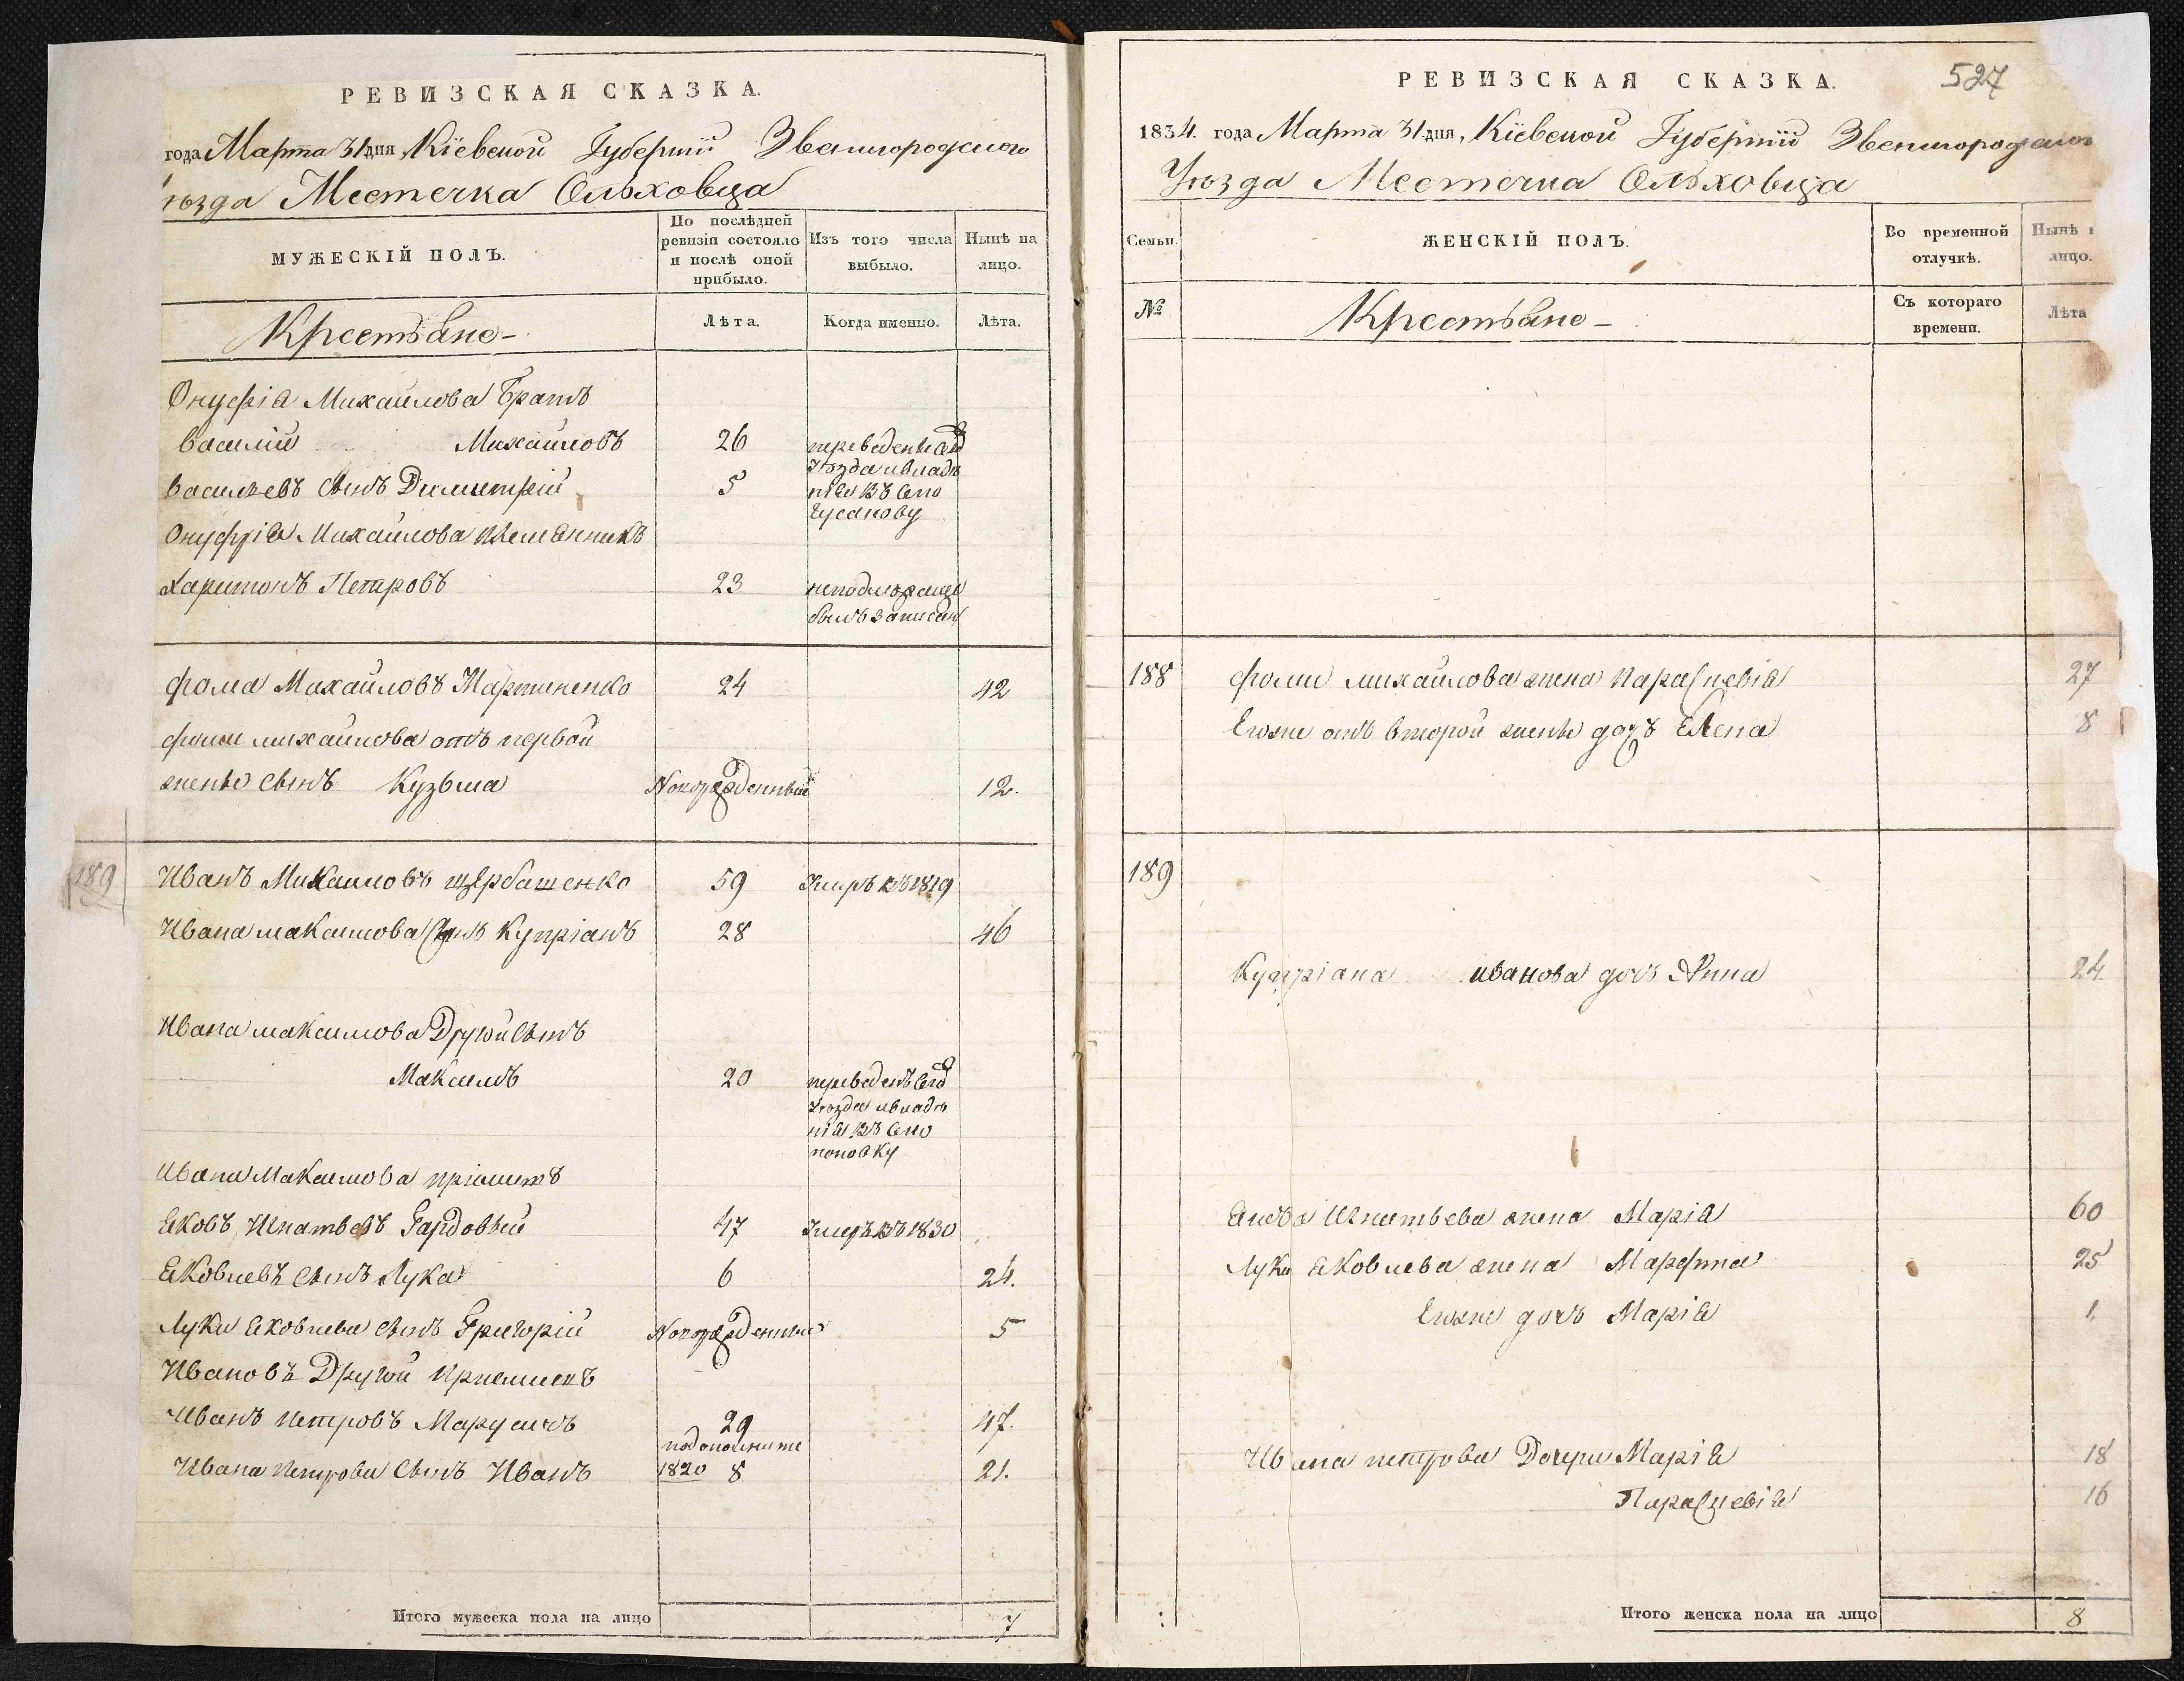 РЕВИЗСКАЯ СКАЗКА.
года Марта 31 дня, Кіевской Губерніи Звенигородского
ѣзда Местечка Ольховца
МУЖЕСКІЙ ПОЛЪ.
По послѣдней ревизіи состояло и послѣ оной прибыло.
Изъ того числа выбыло.
Нынѣ на лицо.
Крестьяне-
Лѣта.
Когда именно.
Лѣта.
Онуфрія Михайлова Братъ
Василій Михайловъ 26 переведены сегд
Васильевъ Сынъ Димитрій 5 уѣзда и владѣ
нія въ село
Гусакову
Онуфрія Михайлова племянникъ
Харитонъ Петровъ 23
былъ записан
Фома Михайловъ Мартиненко 24 42
Фомы Михайлова отъ первой
жены сынъ Кузьма Новорожденный 12.
189
Иванъ Максимовъ щербашенко 59 Умръ въ 1819
Ивана Максимова Сынъ Купріанъ 28 46
Ивана Максимова Другой Сынъ
Максимъ 20 переведенъ сегд
уѣзда и владѣ
нія въ село
поповку
Ивана Максимова пріимитъ
Яковъ Игнатьевъ Гардовый 47 Умеръ въ 1830
Яковлевъ сынъ Лука 6 24.
Луки Яковлева сынъ Григорій Новорожденный 5
Ивановъ Другой Приемшекъ
Иванъ Петровъ Марусичъ 29 47.
Ивана Петрова Сынъ Иванъ 1820 8 21.
Итого мужеска пола на лицо 7
527
РЕВИЗСКАЯ СКАЗКА.
1834. года Марта 31 дня, Кіевской Губерніи Звенигородского
Уѣзда Местечка Ольховца
Семьи.
ЖЕНСКІЙ ПОЛЪ.
Во временной отлучкѣ.
Нынѣ лицо.
№
Крестьяне-
Съ котораго времени.
Лѣта
188 Фомы михайлова жена Параскевія 27
Егоже отъ второй жены дочь Елена 8
189
Купріана иванова дочь Анна 24
Якова Игнатьева жена Марія 60
Луки Яковлева жена Марфта 25
Егоже дочь Марія 1.
Ивана петрова Дочери Марія 18
Параскевія 16
Итого женска пола на лицо 8